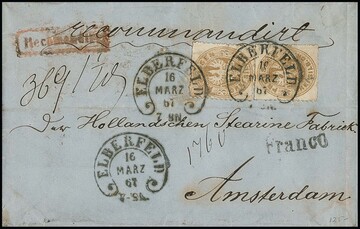 recommandirt
Recomman
ELBERFELD
16
MARZ
67
7-8N.
ELBERFELD
16
MARZ
67
7-8N.
Der Hollandschen Stearine Fabriek
1760
Franco
ELBERFELD
16
MARZ
67
7-8N.
Amsterdam